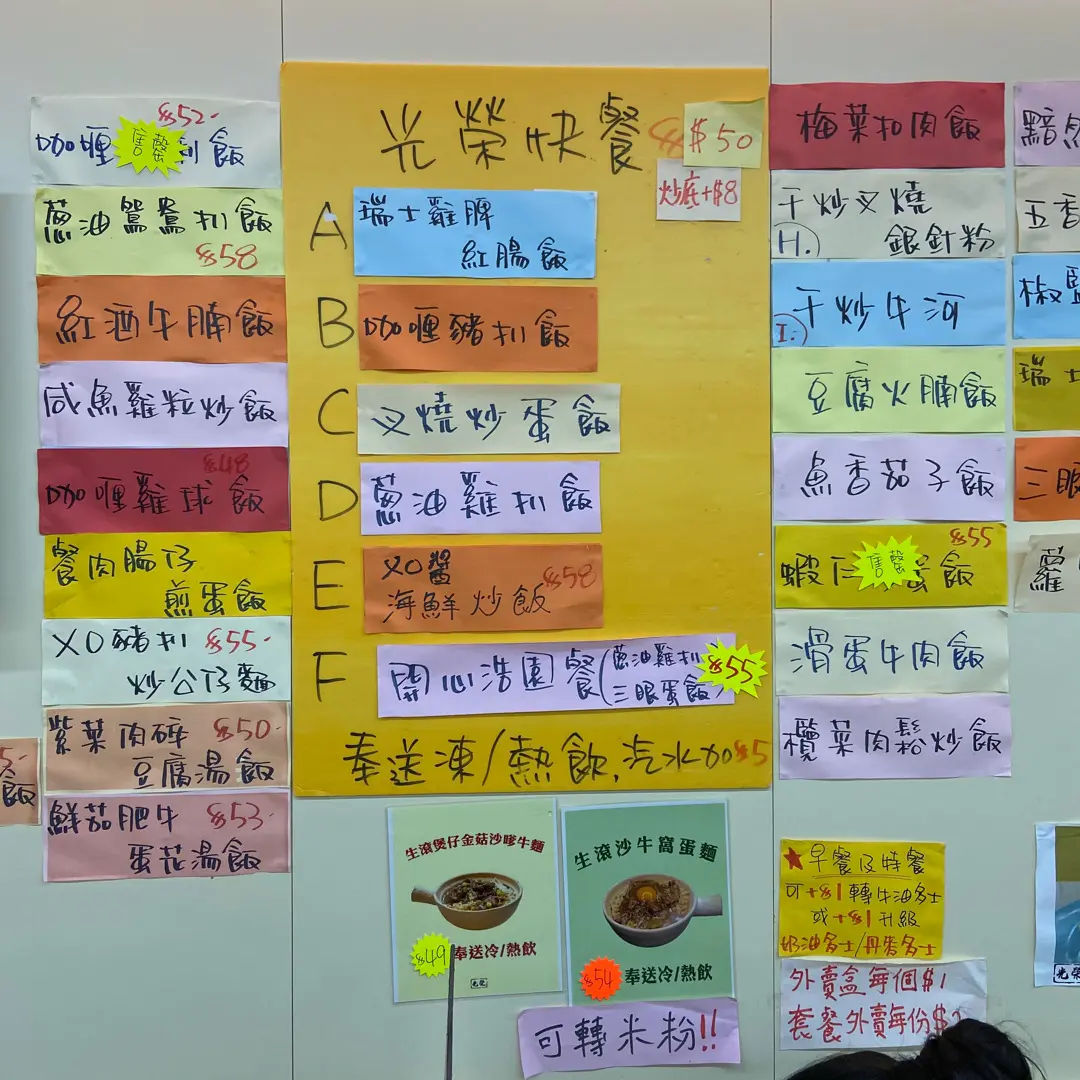 $52.
咖喱
售罄
飯
蔥油鴛鴦扒飯
$58
紅酒牛腩飯
咸魚雞粒炒飯
$48
咖喱雞球飯
餐肉腸仔
煎蛋飯
XO豬扒 $55.
炒公仔麵
紫菜肉碎 $50.
豆腐湯飯
鮮茄肥牛 $53.
蛋花湯飯
飯
光榮快餐 $50
炒底+$8
A 瑞士雞脾
紅腸飯
B 咖喱豬扒飯
C 叉燒炒蛋飯
D 蔥油雞扒飯
E XO醬
海鮮炒飯 $58
F 開心浩園餐(蔥油雞扒
三眼蛋飯) $55
奉送凍/熱飲,汽水加$5
生滾煲仔金菇沙嗲牛麵
$49 奉送冷/熱飲
光榮
生滾沙牛窩蛋麵
$54 奉送冷/熱飲
可轉米粉!!
梅菜扣肉飯
干炒叉燒
H. 銀針粉
I. 干炒牛河
豆腐火腩飯
魚香茄子飯
$55
蝦
售罄
蛋飯
滑蛋牛肉飯
欖菜肉鬆炒飯
★早餐及特餐
可+$1轉牛油多士
或+$1升級
奶油多士/丹麥多士
外賣盒每個$1
套餐外賣每份$
五香
椒鹽
瑞士
三眼
蘿
光榮